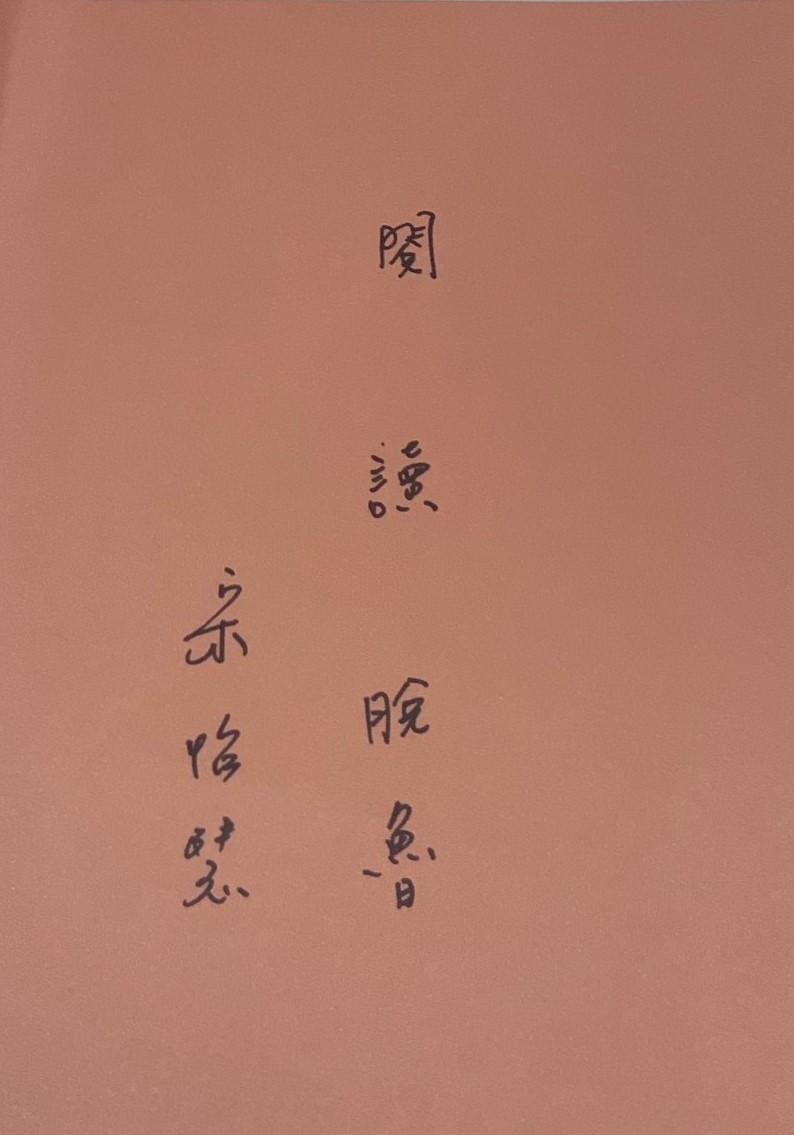 閱讀脫魯
宋怡慧